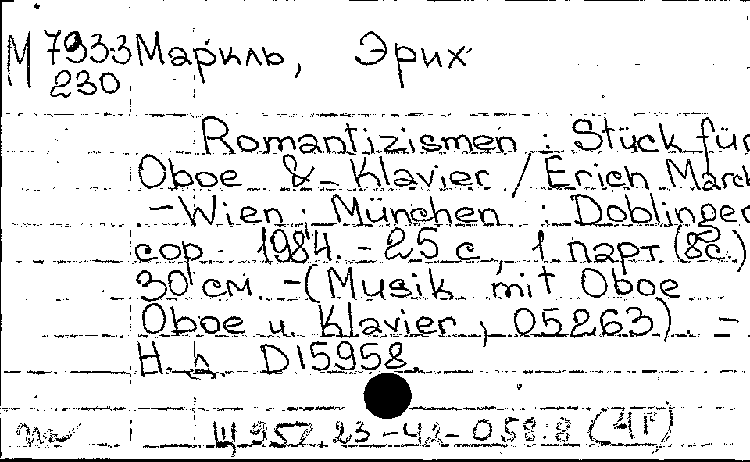 М 7933 Маркль, Эрих
230
Romantizismen : Stück für
Oboe & Klavier / Erich March
- Wien ; München : Doblinger
cop. 1984. - 25 с., 1 парт. (8с.)
30 см. - (Musik mit Oboe
Oboe u. Klavier ; 05263). -
Н. д. D15958.
Щ957.23-42-058.8 (4Г)